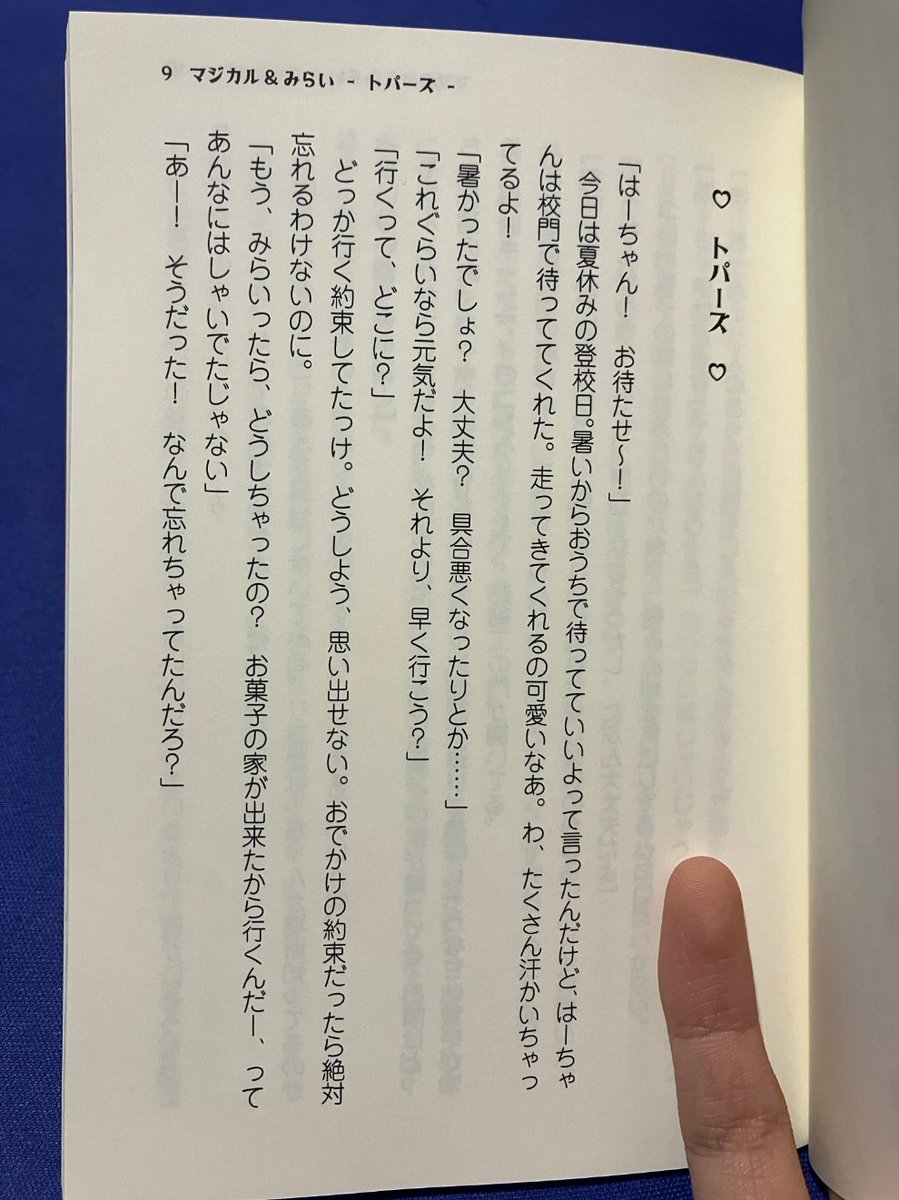 9 マジカル&みらい - トパーズ -
♡ トパーズ ♡
「はーちゃん! お待たせ〜!」
今日は夏休みの登校日。暑いからおうちで待ってていいよって言ったんだけど、はーちゃ
んは校門で待っててくれた。走ってきてくれるの可愛いなあ。わ、たくさん汗かいちゃっ
てるよ!
「暑かったでしょ? 大丈夫? 具合悪くなったりとか……」
「これぐらいなら元気だよ! それより、早く行こう?」
「行くって、どこに?」
どっか行く約束してたっけ。どうしよう、思い出せない。おでかけの約束だったら絶対
忘れるわけないのに。
「もう、みらいったら、どうしちゃったの? お菓子の家が出来たから行くんだー、って
あんなにはしゃいでたじゃない」
「あー! そうだった! なんで忘れちゃってたんだろ?」